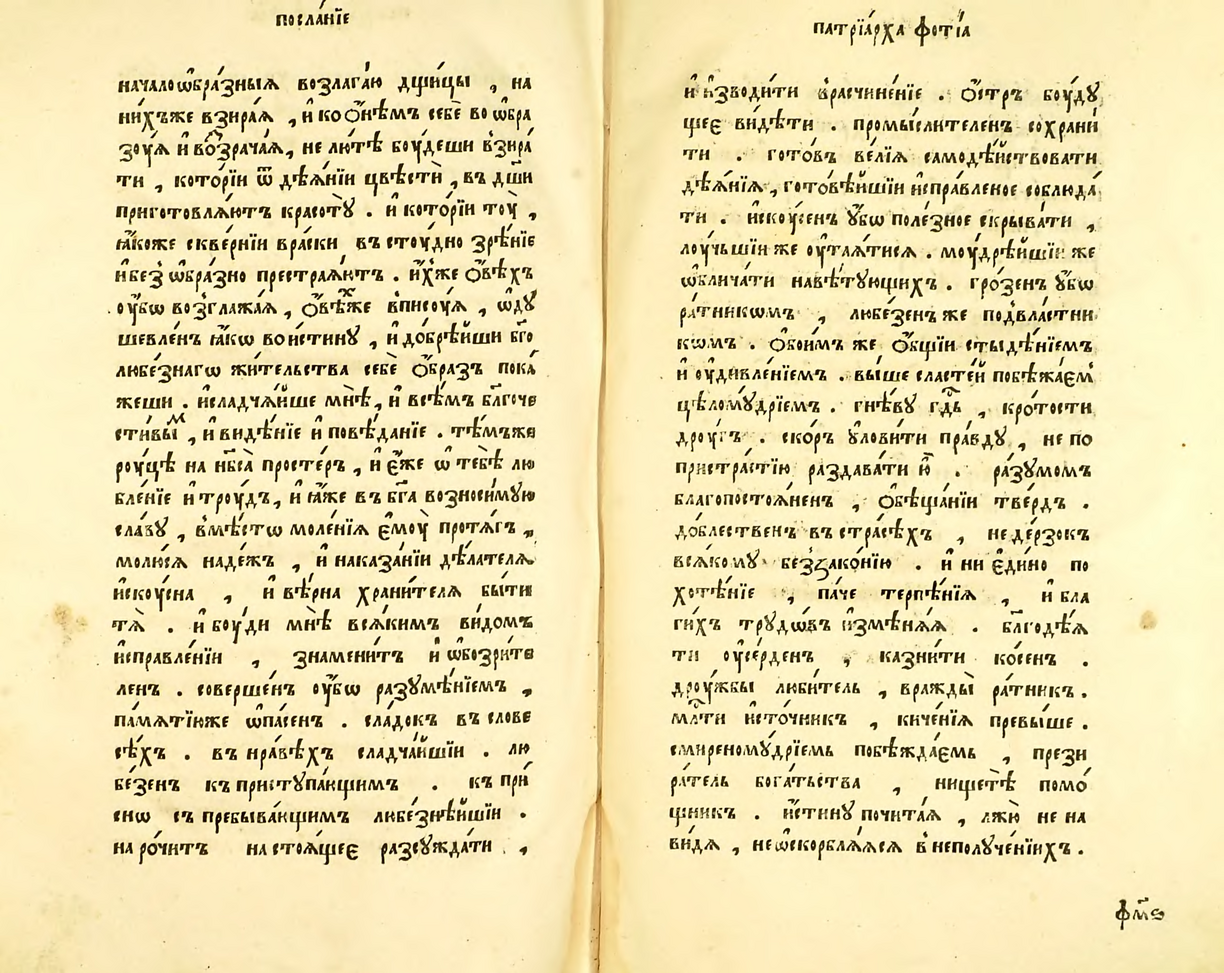 посла́нїе
начало̀ѡбра́зныѧ возлага́ю дщи́цы , на
ни́хъже взира́ѧ , и҆ ко ѻ҆́нѣмъ себѐ во ѡ҆бра
зꙋ́ѧ и҆ во́зрачаѧ, не лю́тѣ бо́удеши взира́
ти , кото́рїи ѿ дѣѧ́нїи цвѣ́сти , въ дш҃и
приготовлѧ́ютъ красотꙋ̀ . и҆ кото́рїи тоу̀ ,
ꙗ҆́коже скве́рнїи вра́ски въ сто́удно зрѣ́нїе
и҆ без̾ ѡ҆бра́зно престра́ѧютъ . и҆́хже ѻ҆́вѣхъ
оу҆́бѡ возглажа́ѧ , ѻ҆́вѣхже впису́ѧ , ѡ҆дꙋ
шевле́нъ ꙗ҆́кѡ вои́стинꙋ , и҆ до́брѣйши бг҃о
любе́знагѡ жи́тельства себѐ ѻ҆́бразъ пока́
жеши . и҆ сладча́йше мнѣ̀, и҆ всѣ́мъ бл҃гоче
сти́вымъ , и҆ ви́дѣнїе и҆ повѣ́данїе . тѣ́мъже
ро́уцѣ на нб҃са̀ просте́ръ , и҆ є҆́же ѡ҆ тебѣ̀ лю
бле́нїе и҆ тро́удъ, и҆ ꙗ҆́же въ бг҃а возноси́мꙋю
сла́вꙋ , вмѣ́стѡ моле́нїѧ є҆моу̀ протѧ́гъ ,
молю́сѧ наде́жъ , и҆ наказа́нїи дѣ́лателѧ
и҆ску́сна , и҆ вѣ́рна храни́телѧ бы́ти
тѧ̀ . и҆ бо́уди мнѣ̀ всѧ́кимъ ви́домъ
и҆справле́нїи , знамени́тъ и҆ ѡ҆бозри́те
ленъ . соверше́нъ оу҆́бѡ разꙋмѣ́нїемъ ,
па́мѧтїюже ѡ҆па́сенъ . сла́докъ въ слове
сѣ́хъ . въ нра́вѣхъ сладча́йшїи . лю
бе́зенъ къ пристꙋпа́ющимъ . къ при́
снѡ съ пребыва́ющимъ любе́знѣйшїи .
на ро́читъ на стоѧ́щеє разсꙋжда́ти ,
патрїа́рха фо́тїа
и҆ и҆зводи́ти в̾расчине́нїе . ѻ҆́стръ бо́удꙋ
щеє ви́дѣти . промы́слителенъ сохрани́
ти . гото́въ ве́лїѧ самодѣ́йствовати
дѣѧ́нїѧ , гото́вѣйшїи и҆спра́вленое соблюда́
ти . и҆ско́усенъ ꙋ҆́бѡ поле́зное скрыва́ти ,
лоу́чьшїи же оу҆таѧ́тисѧ . моудрѣ́йшїи же
ѡ҆блича́ти навѣ́тꙋющихъ . гро́зенъ ꙋ҆́бѡ
ра́тникѡмъ , любе́зенъ же подвла́стни
кѡмъ . ѻ҆бои́мъ же ѻ҆́бщїи стыдѣ́нїемъ
и҆ оу҆дивле́нїемъ . вы́ше сласте́й побѣжа́єм
цѣломꙋ́дрїемъ . гнѣ́вꙋ гд҃ь , кро́тости
дро́угъ . ско́ръ ꙋ҆лови́ти пра́вдꙋ , не по
пристра́стїю раздава́ти ю҆̀ . ра́зꙋмомъ
благопостоѧ́ненъ , ѻ҆бѣща́нїи тве́рдъ .
до́блественъ въ стра́сѣхъ , не де́рзокъ
всѧ́комꙋ без̾зако́нїю . и҆ ни є҆ди́но по
хотѣ́нїе , па́че терпѣ́нїѧ , и҆ бла
ги́хъ трꙋдѡ́въ и҆змѣнѧ́ѧ . бл҃годѣ́ѧ
ти оу҆се́рденъ , казни́ти ко́сенъ .
дро́ужбы люби́тель , вражды̀ ра́тникъ .
мл҃ти и҆сто́чникъ , киче́нїѧ превы́ше .
смиреномꙋ́дрїемь побѣжда́ємь , прези
ра́тель бога́тьства , нищетѣ̀ помо́
щникъ . и҆́стинꙋ почита́ѧ , лжю̀ не на
ви́дѧ , неѡ҆скорблѧ́ѧсѧ в̾ неполꙋче́нїихъ .
фм҃ѕ